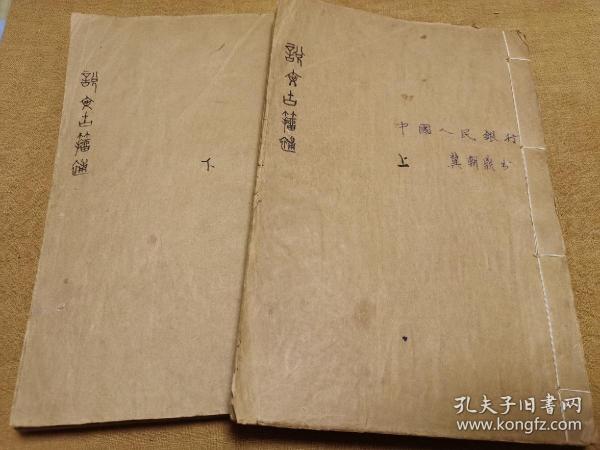 說文古籀補
下
說文古籀補
中國人民銀行
上
冀朝鼎書
孔夫子旧书网
www.kongfz.com